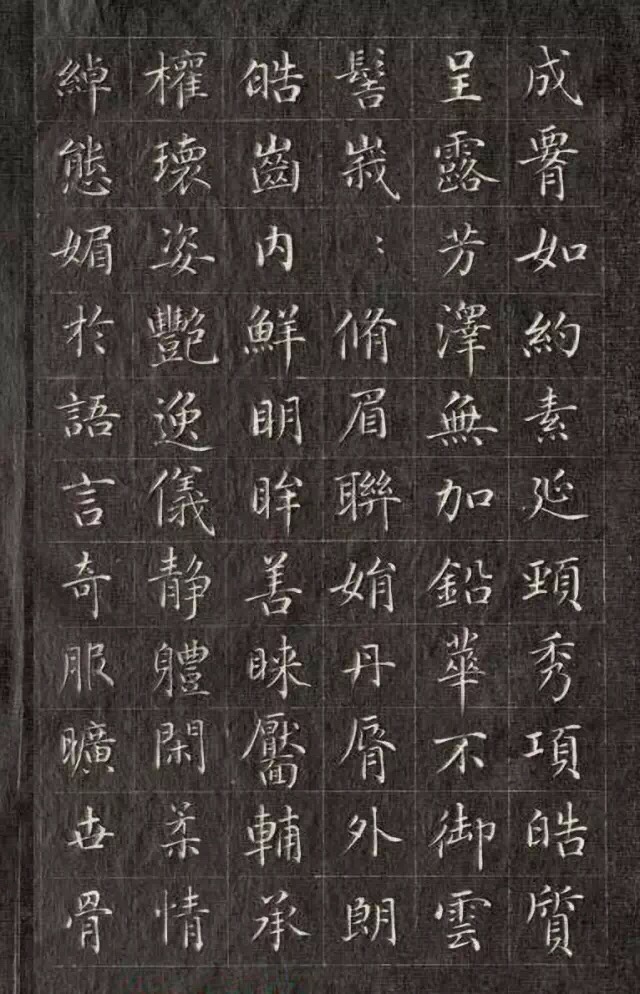 成腰如約素延頸秀項皓質
呈露芳澤無加鉛華不御雲
髻峩〻脩眉聯娟丹脣外朗
皓齒内鮮明眸善睞靨輔承
權瓌姿艷逸儀静軆閑柔情
綽態媚於語言奇服曠世骨